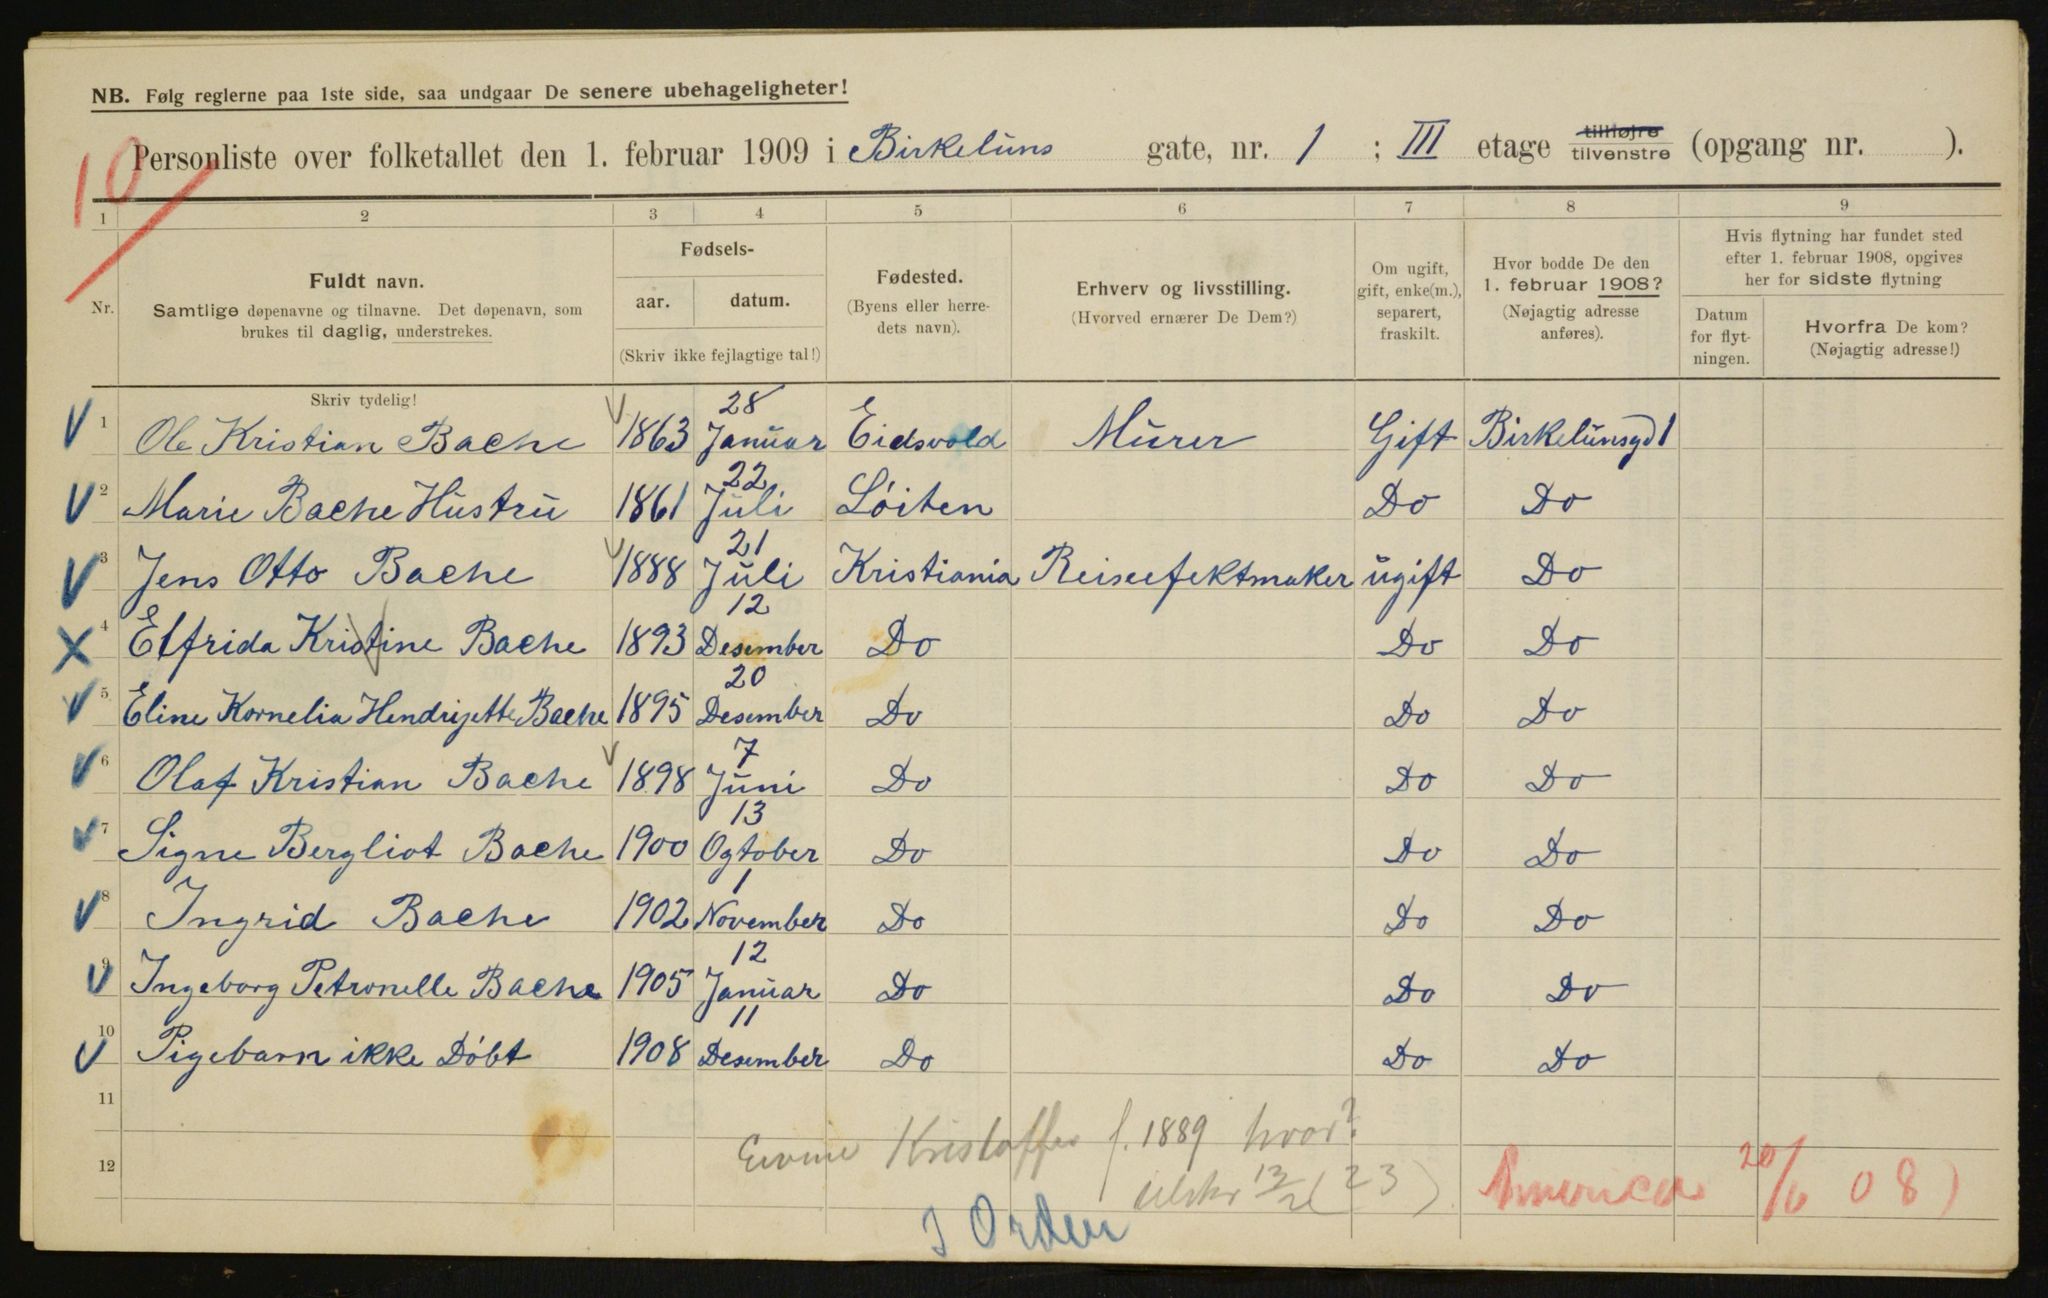 NB. Følg reglerne paa 1ste side, saa undgaar De senere ubehageligheter!
10
Personliste over folketallet den 1. februar 1909 i Birkeluns gate, nr. 1 ; III etage tilhøjre tilvenstre (opgang nr. ).
1 2 3 4 5 6 7 8 9
Nr.
Fuldt navn.
Samtlige døpenavne og tilnavne. Det døpenavn, som
brukes til daglig, understrekes.
Fødsels-
aar. datum.
(Skriv ikke fejlagtige tal!)
Fødested.
(Byens eller herre-
dets navn).
Erhverv og livsstilling.
(Hvorved ernærer De Dem?)
Om ugift,
gift, enke(m.),
separert,
fraskilt.
Hvor bodde De den
1. februar 1908?
(Nøjagtig adresse
anføres).
Hvis flytning har fundet sted
efter 1. februar 1908, opgives
her for sidste flytning
Datum
for flyt-
ningen.
Hvorfra De kom?
(Nøjagtig adresse!)
Skriv tydelig!
1 Ole Kristian Bache 1863 28 Januar Eidsvold Murer Gift Birkelunsgd 1
2 Marie Bache Hustru 1861 22 Juli Löiten Do Do
3 Jens Otto Bache 1888 21 Juli Kristiania Reiseefektmaker ugift Do
4 Elfrida Kristine Bache 1893 12 Desember Do Do Do
5 Eline Kornelia Hendrijette Bache 1895 20 Desember Do Do Do
6 Olaf Kristian Bache 1898 7 Juni Do Do Do
7 Signe Bergliot Bache 1900 13 Ogtober Do Do Do
8 Ingrid Bache 1902 1 November Do Do Do
9 Ingeborg Petronelle Bache 1905 12 Januar Do Do Do
10 Pigebarn ikke Döbt 1908 11 Desember Do Do Do
11
Kristoffer f. 1889 hvor?
12
12/2 (23) America 20/6 08)
I Orden